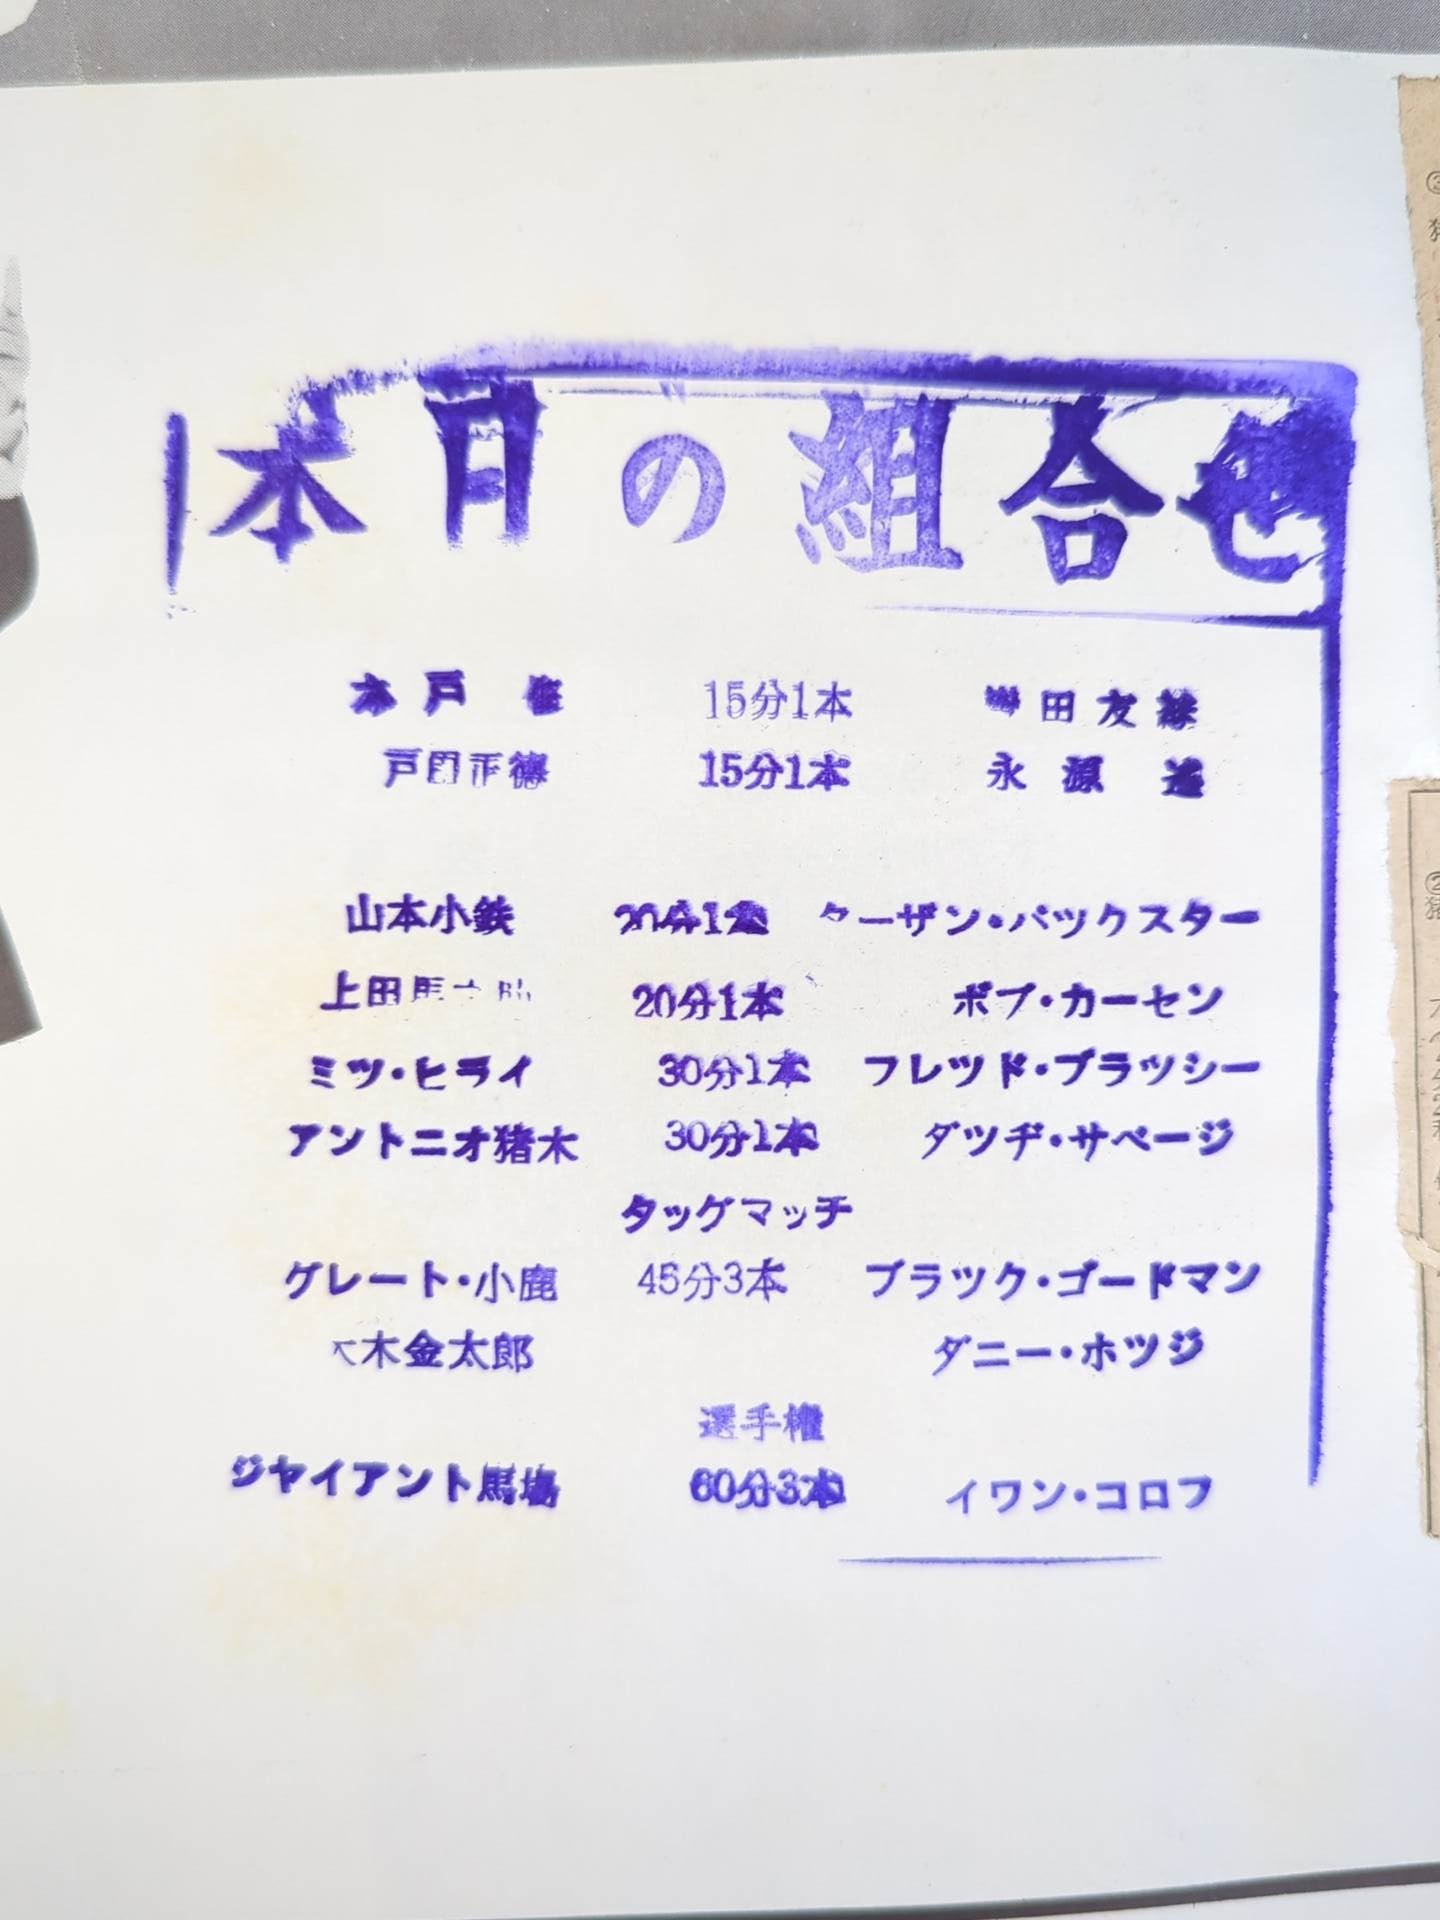 本日の組合せ
木戸 修 15分1本 田友
戸田正徳 15分1本 永源 遙
山本小鉄 20分1本 ターザン・バツクスター
上田馬之助 20分1本 ボブ・カーセン
ミツ・ヒライ 30分1本 フレツド・ブラツシー
アントニオ猪木 30分1本 ダツヂ・サベージ
タッグマッチ
グレート・小鹿 45分3本 ブラツク・ゴードマン
大木金太郎 ダニー・ホツジ
選手権
ジヤイアント馬場 60分3本 イワン・コロフ